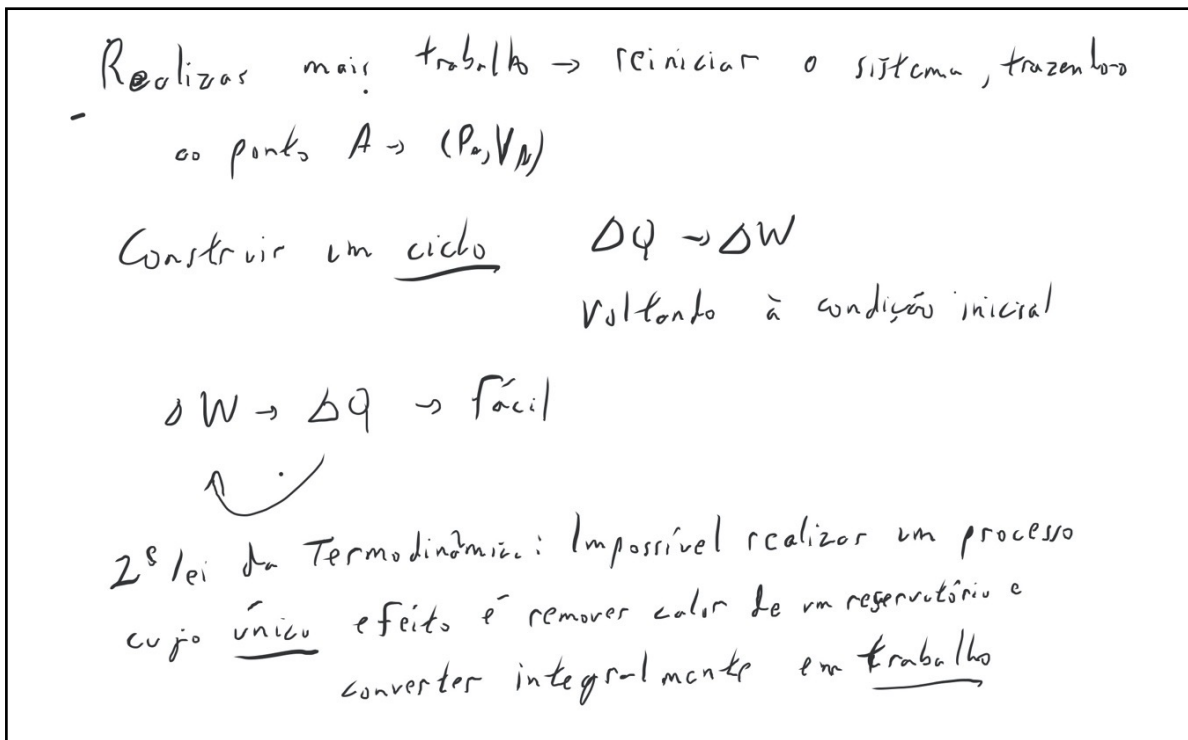 Realizar mais trabalho → reiniciar o sistema, trazendo-o
ao ponto A → (P₀, V_A)
Construir um ciclo ΔQ → ΔW
Voltando à condição inicial
ΔW → ΔQ → fácil
2ª lei da Termodinâmica: Impossível realizar um processo
cujo único efeito é remover calor de um reservatório e
converter integralmente em trabalho